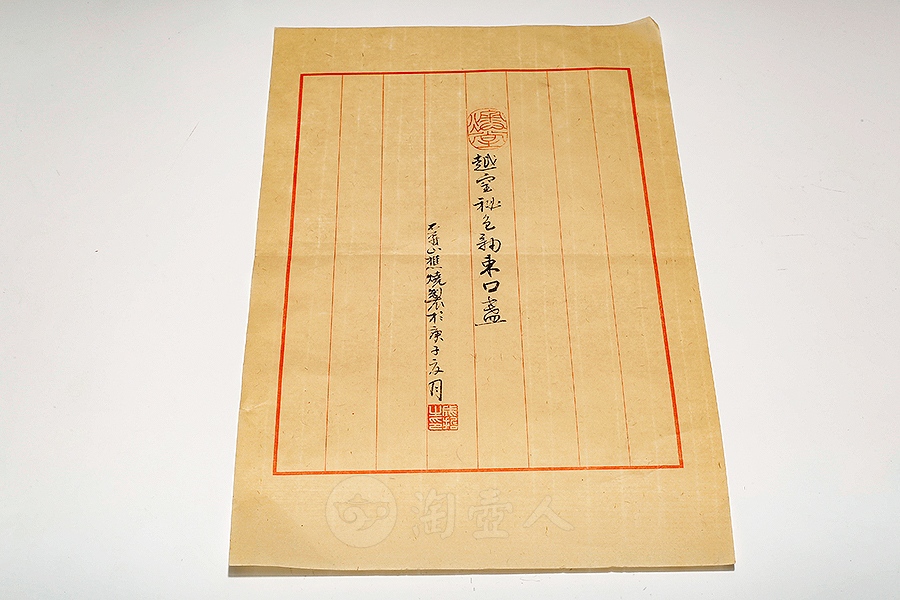 越窑秘色釉束口盞
山樵燒製於庚子夏月
淘壺人